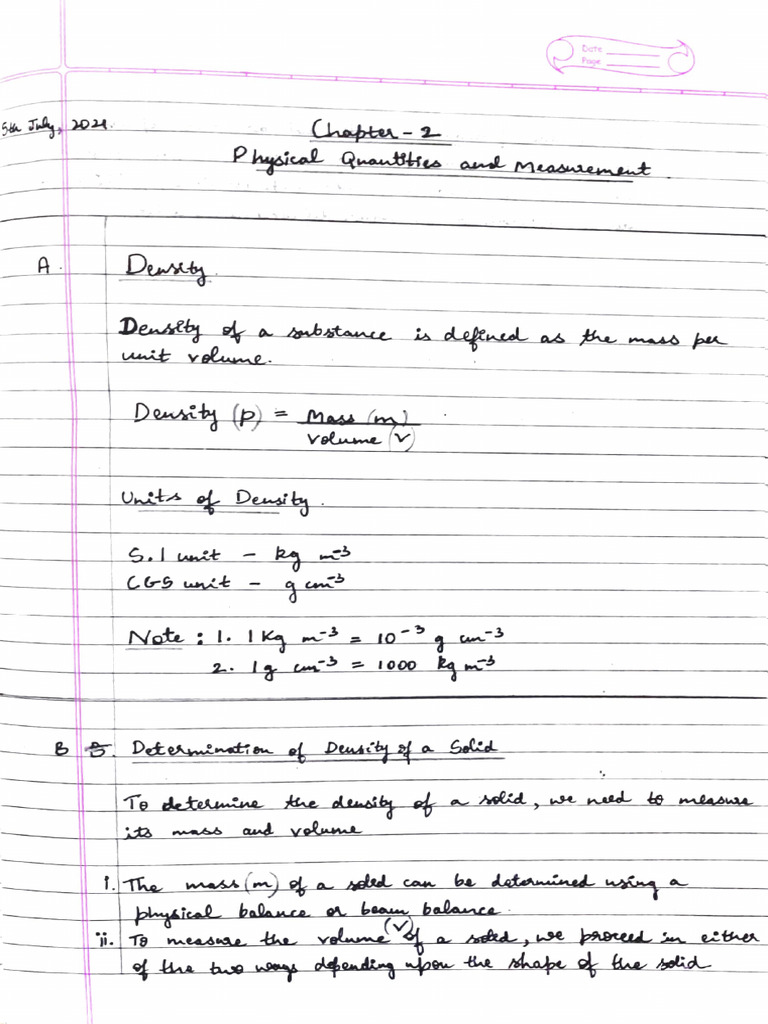 Date
Page
5th July, 2021.
Chapter - 2
Physical Quantities and Measurement.
A. Density.
Density of a substance is defined as the mass per
unit volume.
Density (p) = Mass (m)
Volume (v)
Units of Density.
S.I unit - kg m⁻³
CGS unit - g cm⁻³
Note : 1. 1 Kg m⁻³ = 10⁻³ g cm⁻³
2. 1g cm⁻³ = 1000 kg m⁻³
B Determination of Density of a Solid
To determine the density of a solid, we need to measure
its mass and volume
i. The mass (m) of a solid can be determined using a
physical balance or beam balance.
ii. To measure the volume (V) of a solid, we proceed in either
of the two ways depending upon the shape of the solid